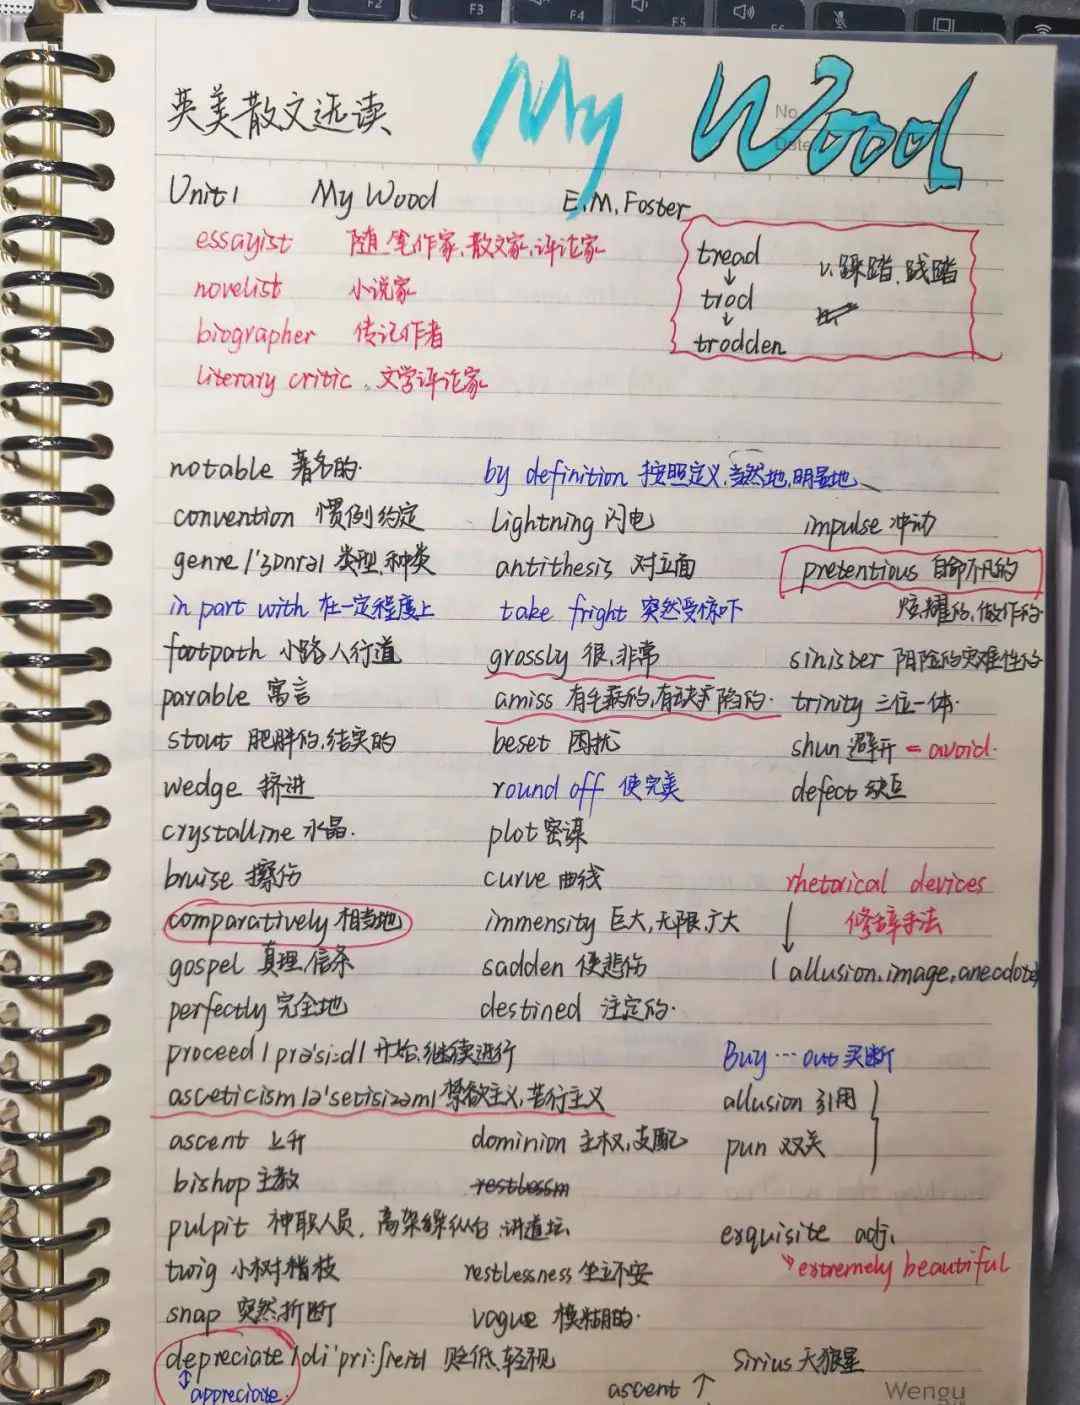 F2 F3 F4 F5
英美散文选读 My Wood
No.
Date
Unit 1 My Wood E.M. Foster
essayist 随笔作家、散文家、评论家
tread v.踩踏、践踏
novelist 小说家
trod
biographer 传记作者
trodden
literary critic 文学评论家
notable 著名的. by definition 按照定义,当然地,明显地
convention 惯例约定 lightning 闪电 impulse 冲动
genre /'ʒɒnrə/ 类型,种类 antithesis 对立面 pretentious 自命不凡的
in part with 在一定程度上 take fright 突然受惊吓 炫耀的,做作的
footpath 小路人行道 grossly 很,非常 sinister 阴险的灾难性的
parable 寓言 amiss 有毛病的,有缺陷的. trinity 三位一体.
stout 肥胖的,结实的 beset 困扰 shun 避开 = avoid.
wedge 挤进 round off 使完美 defect 缺点
crystalline 水晶. plot 密谋
bruise 擦伤 curve 曲线 rhetorical devices
comparatively 相当地 immensity 巨大,无限,广大 修辞手法
gospel 真理,信条 sadden 使悲伤 ( allusion, image, anecdote
perfectly 完全地 destined 注定的.
proceed /prə'si:d/ 开始,继续进行 Buy … out 买断
asceticism /ə'setisizəm/ 禁欲主义,苦行主义 allusion 引用
ascent 上升 dominion 主权,支配 pun 双关
bishop 主教 restlessm
pulpit 神职人员, 高架操纵台,讲道坛 exquisite adj.
twig 小树梢枝 restlessness 坐立不安 extremely beautiful
snap 突然折断 vague 模糊的.
depreciate /di'pri:ʃieit/ 贬低,轻视 Sirius 天狼星
appreciate. ascent ↑
Wengu